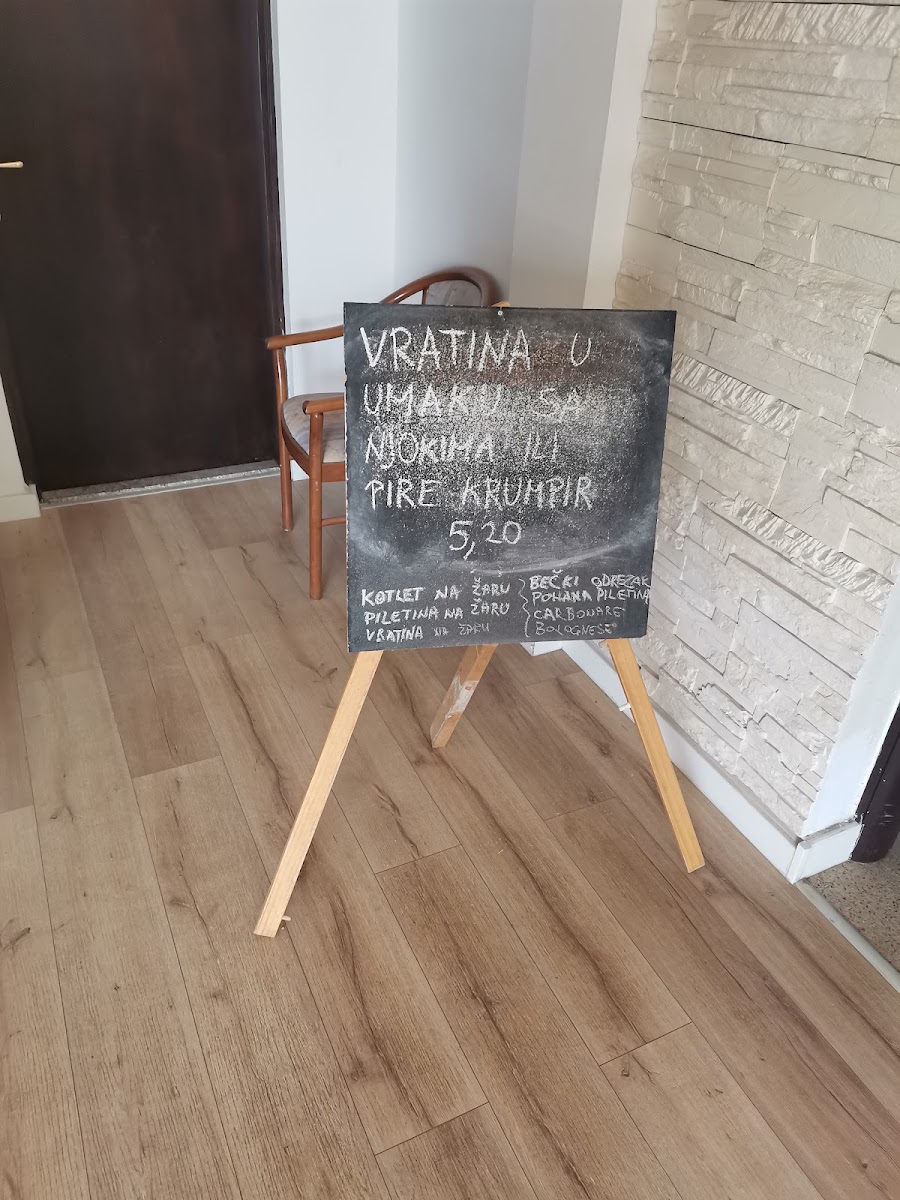 VRATINA U
UMAKU SA
NJOKIMA ILI
PIRE KRUMPIR
5,20
KOTLET NA ŽARU
PILETINA NA ŽARU
VRATINA NA ŽARU
BEČKI ODREZAK
POHANA PILETINA
CARBONARE
BOLOGNESE